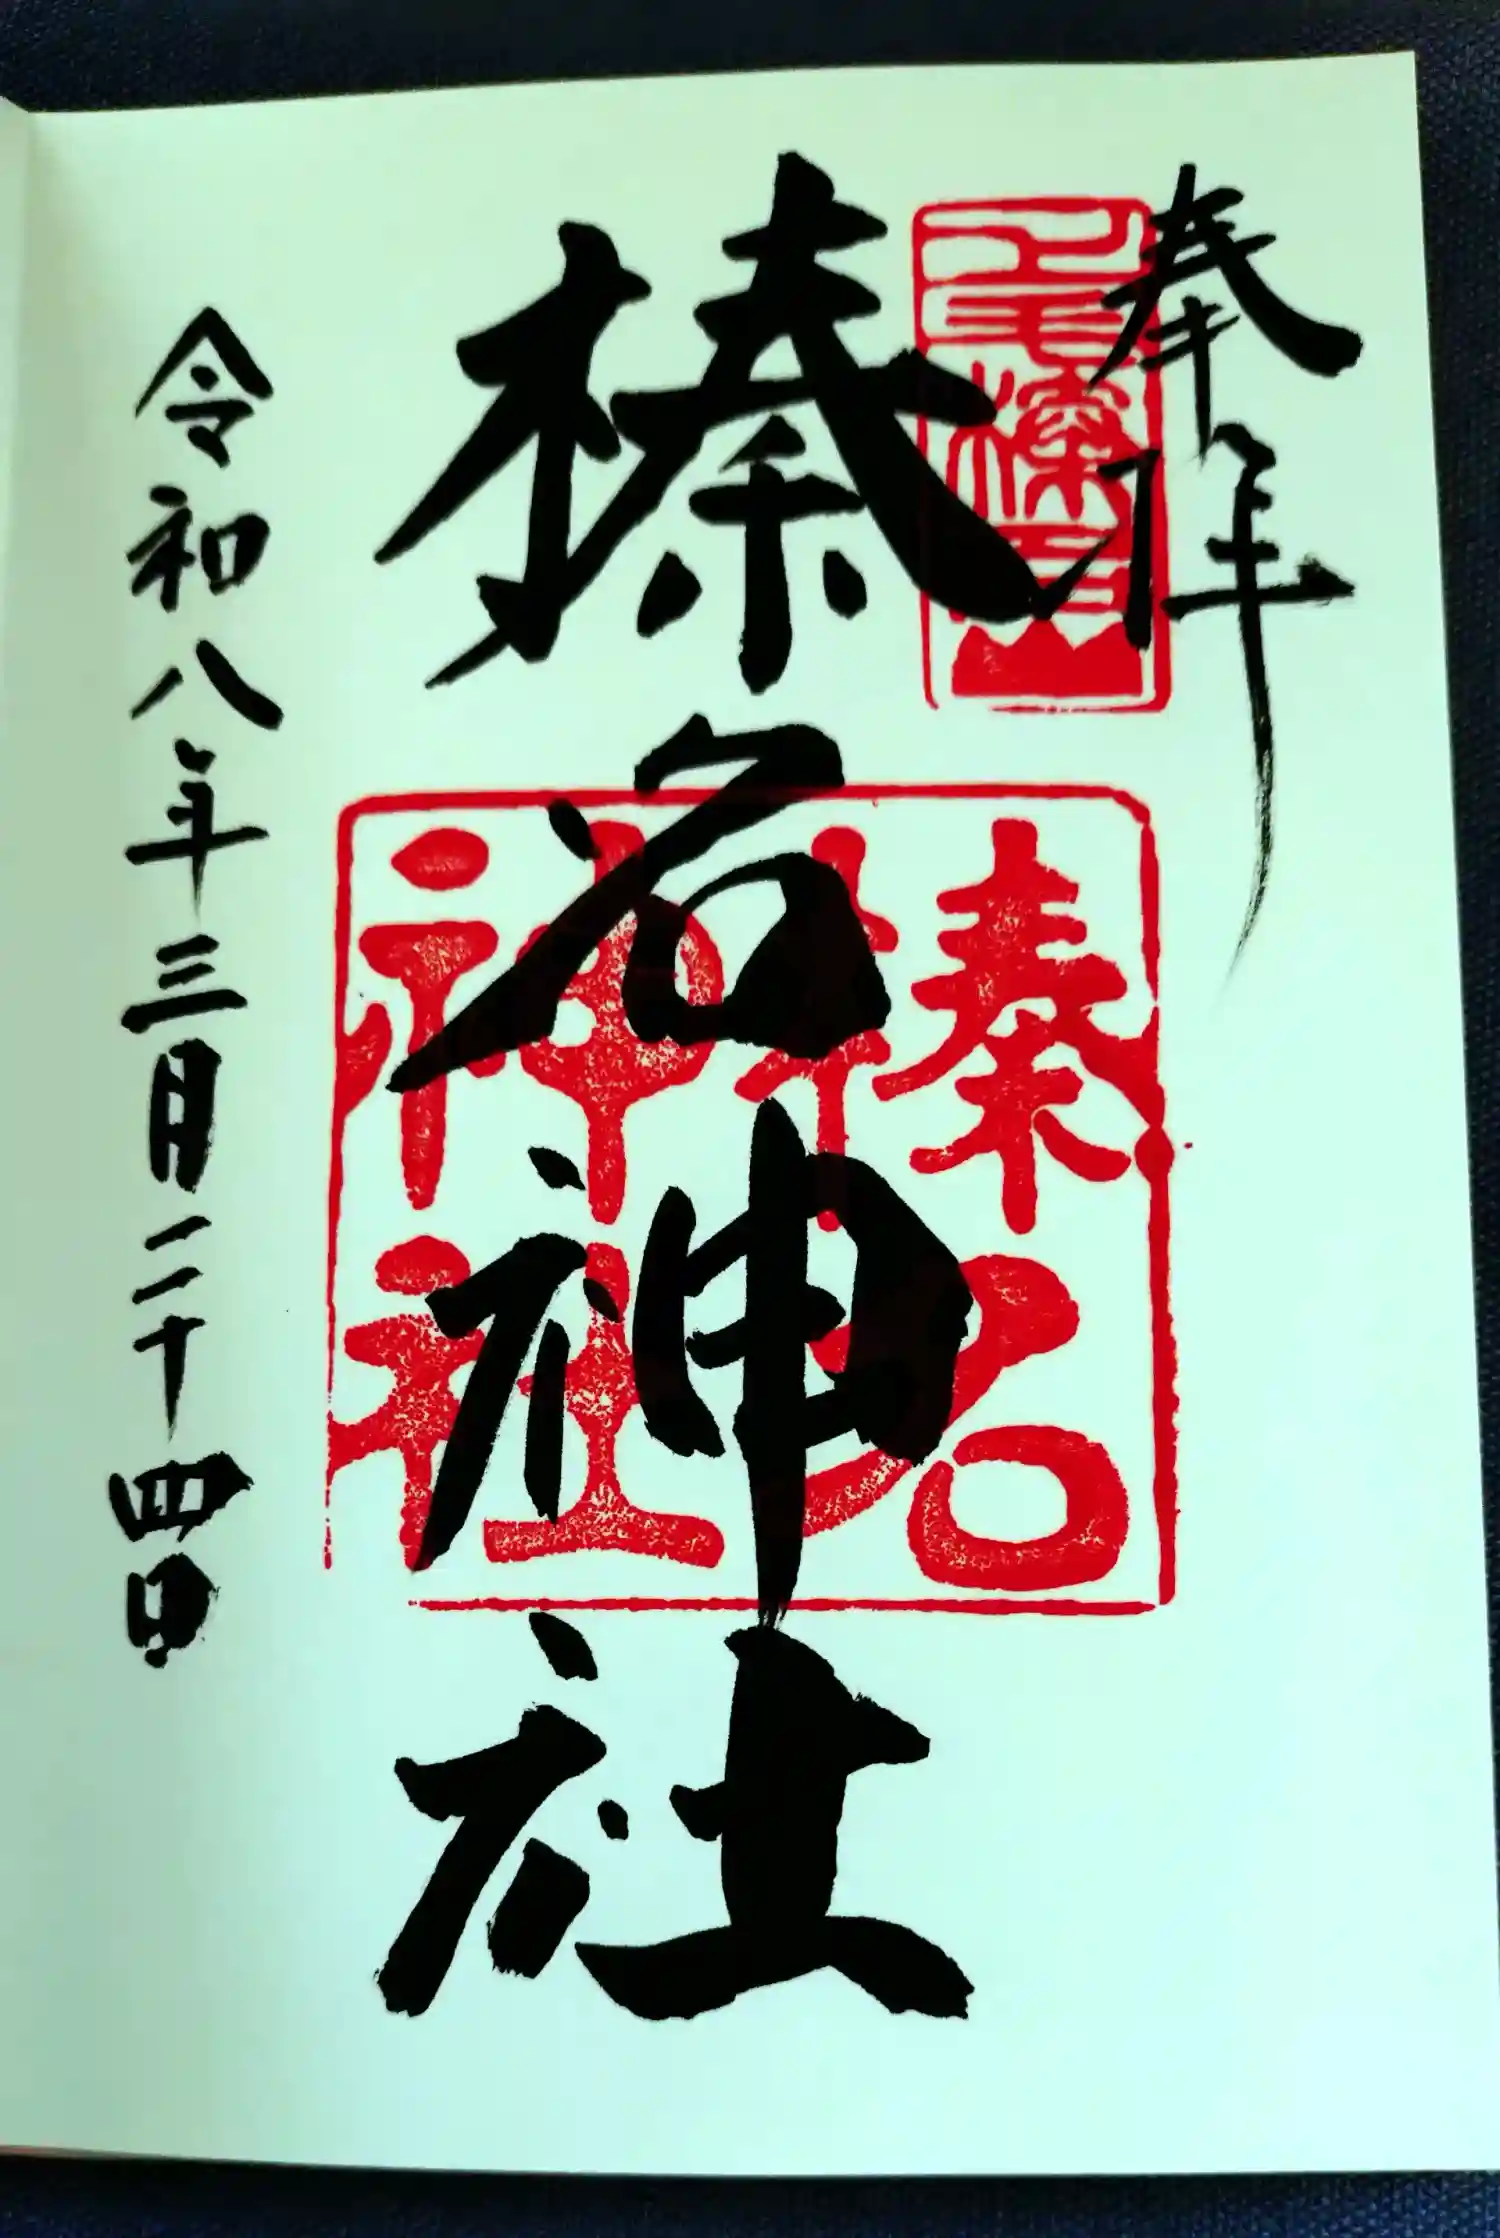 奉拝
上毛榛名山
榛名神社
榛名神社
令和八年三月二十四日